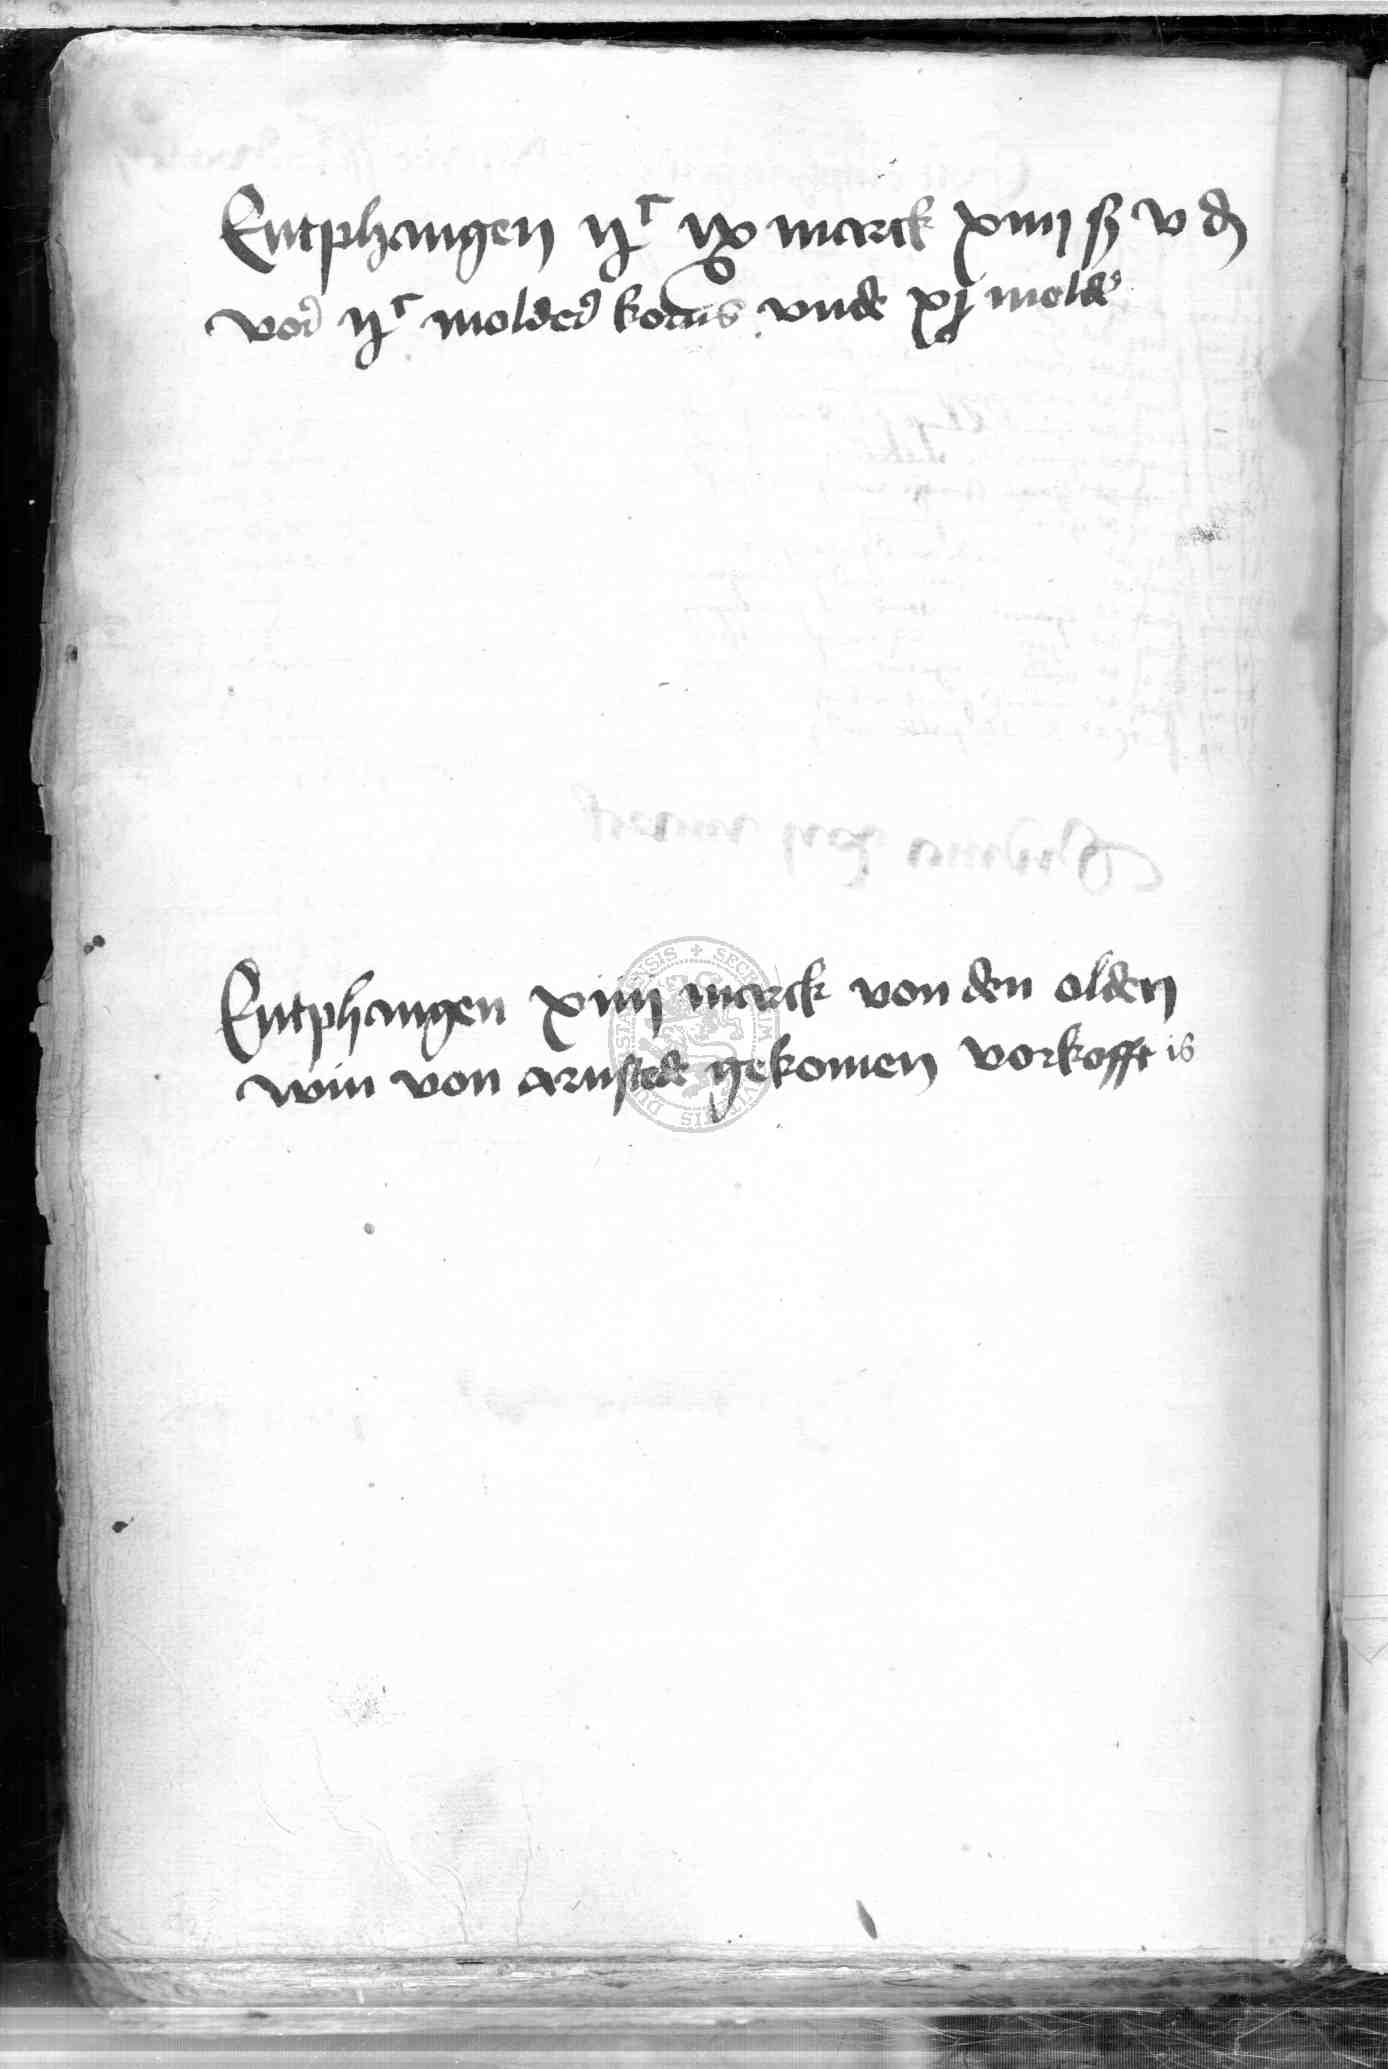 Entphangen ijᶜ ix marck xiiij ß v ₰
vor ijᶜ molder korns vnde xj molder
Entphangen xiiij marck von den olden
win von arnstede gekomen vorkofft is